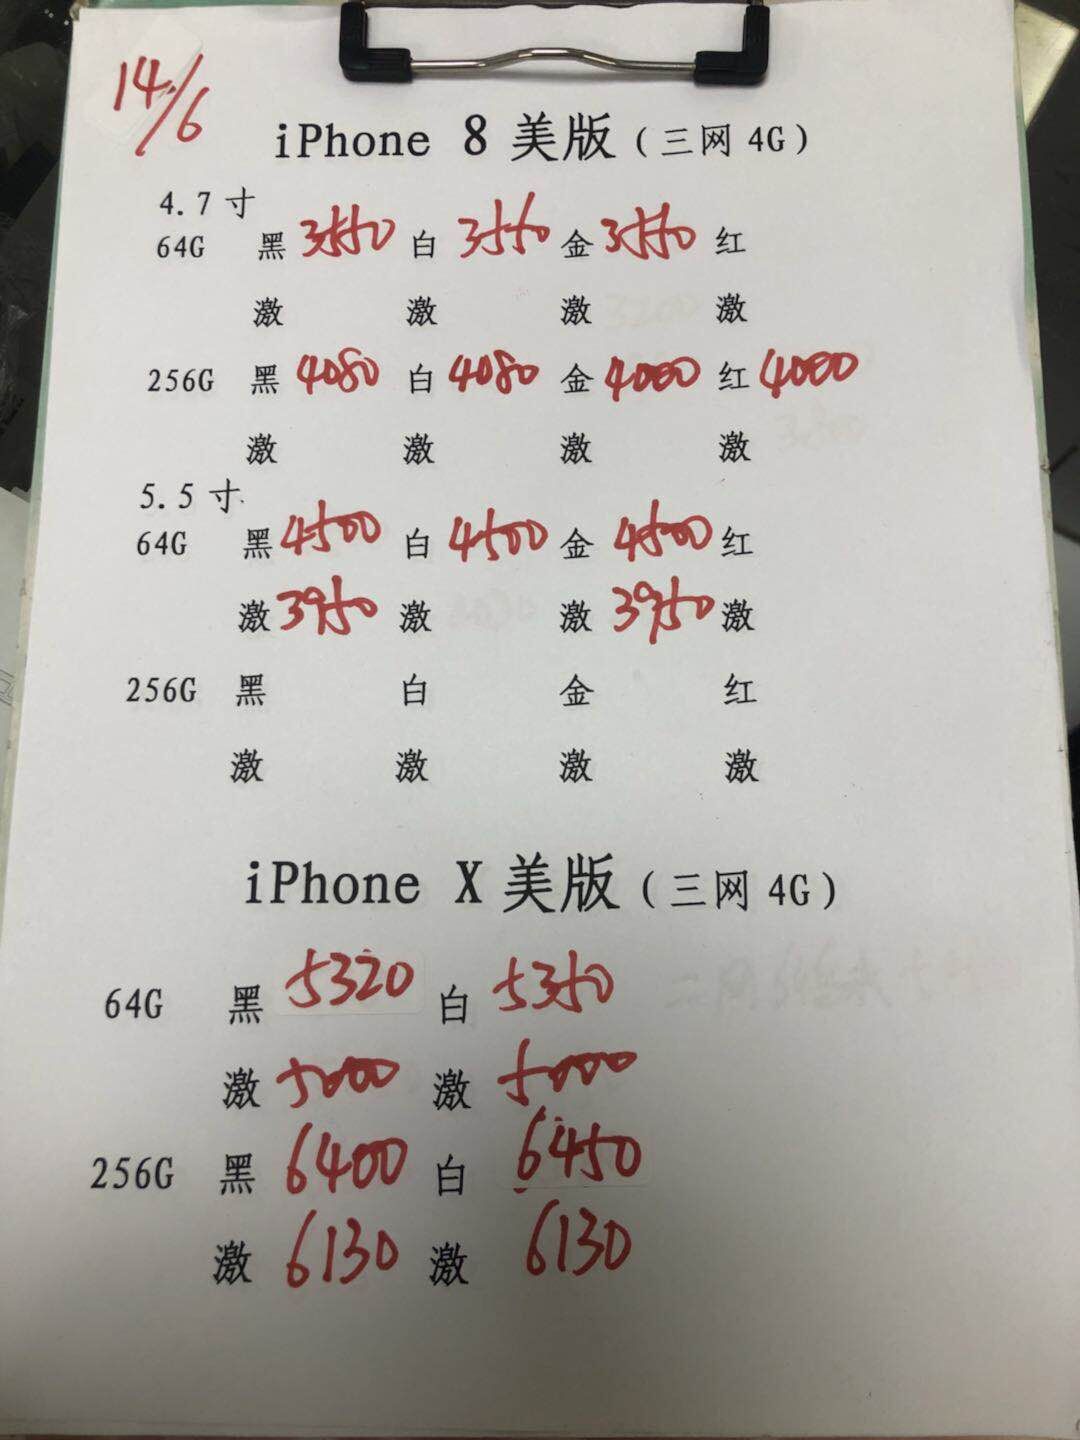 14/6
iPhone 8 美版（三网 4G）
4.7 寸
64G 黑 3550 白 3550 金 3550 红
激 激 激 激
256G 黑 4080 白 4080 金 4000 红 4000
激 激 激 激
5.5 寸
64G 黑 4500 白 4500 金 4500 红
激 3950 激 激 3950 激
256G 黑 白 金 红
激 激 激 激
iPhone X 美版（三网 4G）
64G 黑 5320 白 5350
激 5000 激 5000
256G 黑 6400 白 6450
激 6130 激 6130